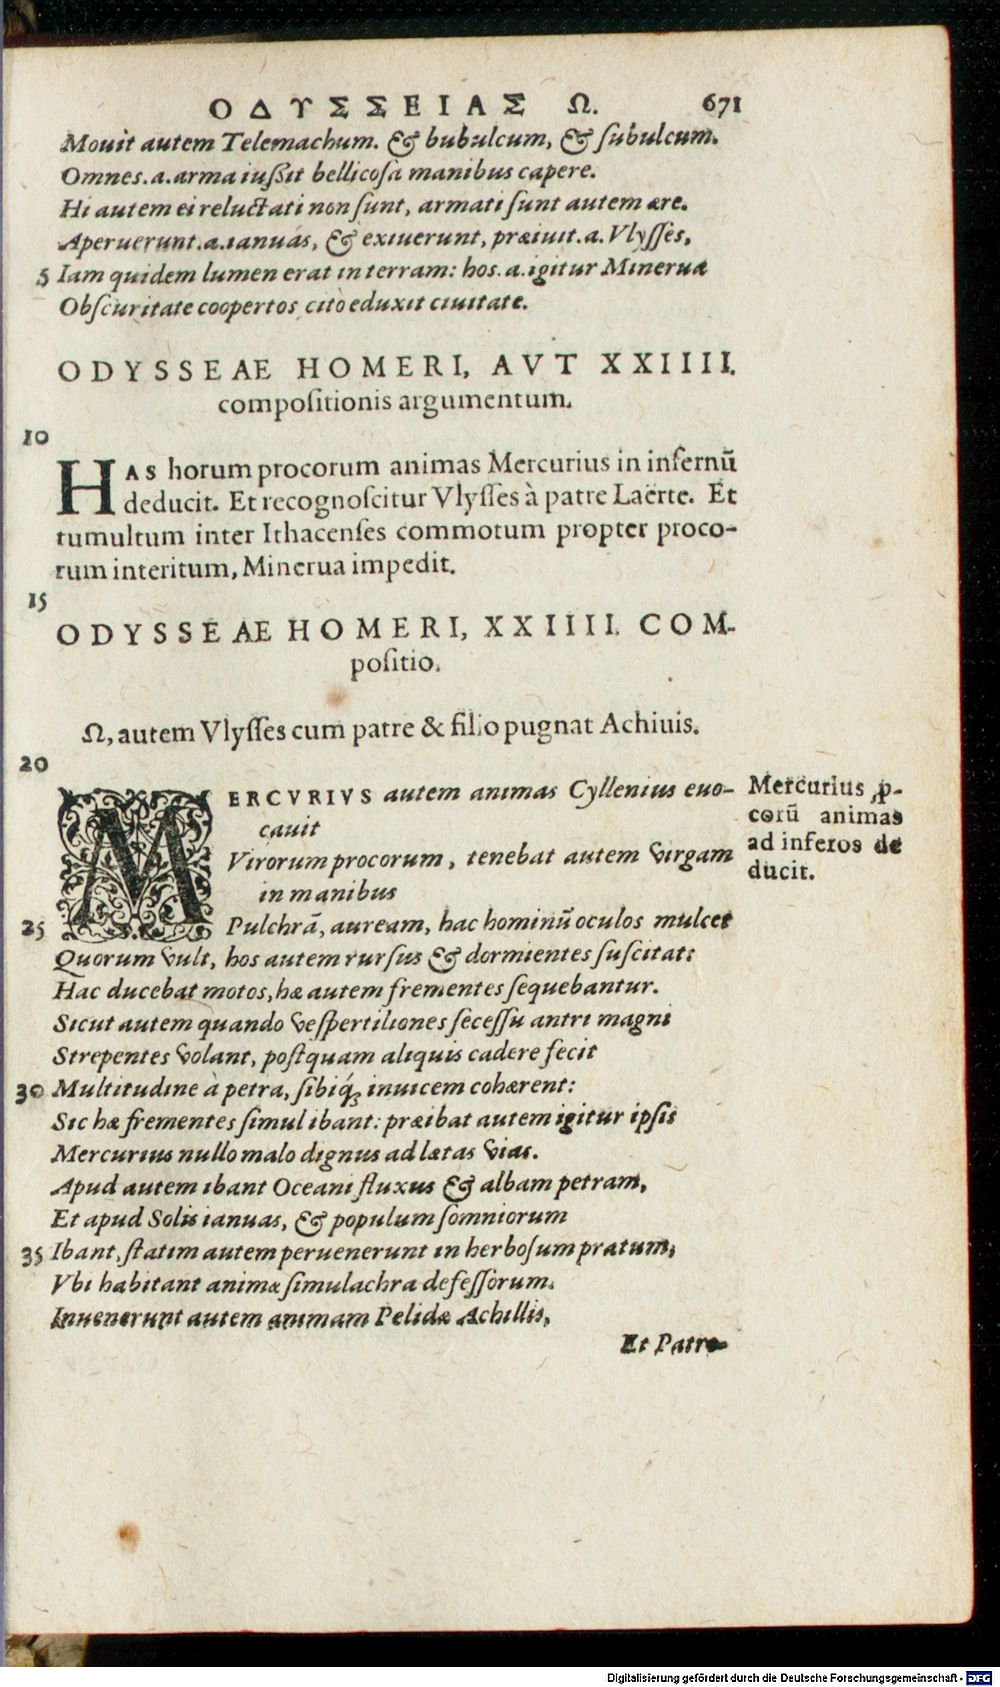 ΟΔΥΣΣΕΙΑΣ Ω. 671
Mouit autem Telemachum. & bubulcum, & ſubulcum.
Omnes.a.arma iuſſit bellicoſa manibus capere.
Hi autem ei reluctati non ſunt, armati ſunt autem ære.
Aperuerunt.a.ianuas, & exiuerunt, præiuit.a. Vlyſſes,
5 Iam quidem lumen erat in terram: hos.a.igitur Minerua
Obſcuritate coopertos cito eduxit ciuitate.
ODYSSEAE HOMERI, AVT XXIIII.
compoſitionis argumentum.
10
HAS horum procorum animas Mercurius in infernũ
deducit. Et recognoſcitur Vlyſſes à patre Laërte. Et
tumultum inter Ithacenſes commotum propter proco-
rum interitum, Minerua impedit.
15
ODYSSEAE HOMERI, XXIIII. COM-
poſitio.
Ω, autem Vlyſſes cum patre & filio pugnat Achiuis.
20
MERCVRIVS autem animas Cyllenius euo-
cauit
Virorum procorum, tenebat autem virgam
in manibus
25 Pulchrã, auream, hac hominũ oculos mulcet
Quorum vult, hos autem rurſus & dormientes ſuſcitat:
Hac ducebat motos, hæ autem frementes ſequebantur.
Sicut autem quando veſpertiliones ſeceſſu antri magni
Strepentes volant, poſtquam aliquis cadere fecit
30 Multitudine à petra, ſibiq́; inuicem cohærent:
Sic hæ frementes ſimul ibant: præibat autem igitur ipſis
Mercurius nullo malo dignus ad lætas vias.
Apud autem ibant Oceani fluxus & albam petram,
Et apud Solis ianuas, & populum ſomniorum
35 Ibant, ſtatim autem peruenerunt in herboſum pratum,
Vbi habitant animæ ſimulachra defeſſorum.
Inuenerunt autem animam Pelidæ Achillis,
Et Patro-
Mercurius ꝓ-
corũ animas
ad inferos de
ducit.
Digitalisierung gefördert durch die Deutsche Forschungsgemeinschaft - DFG